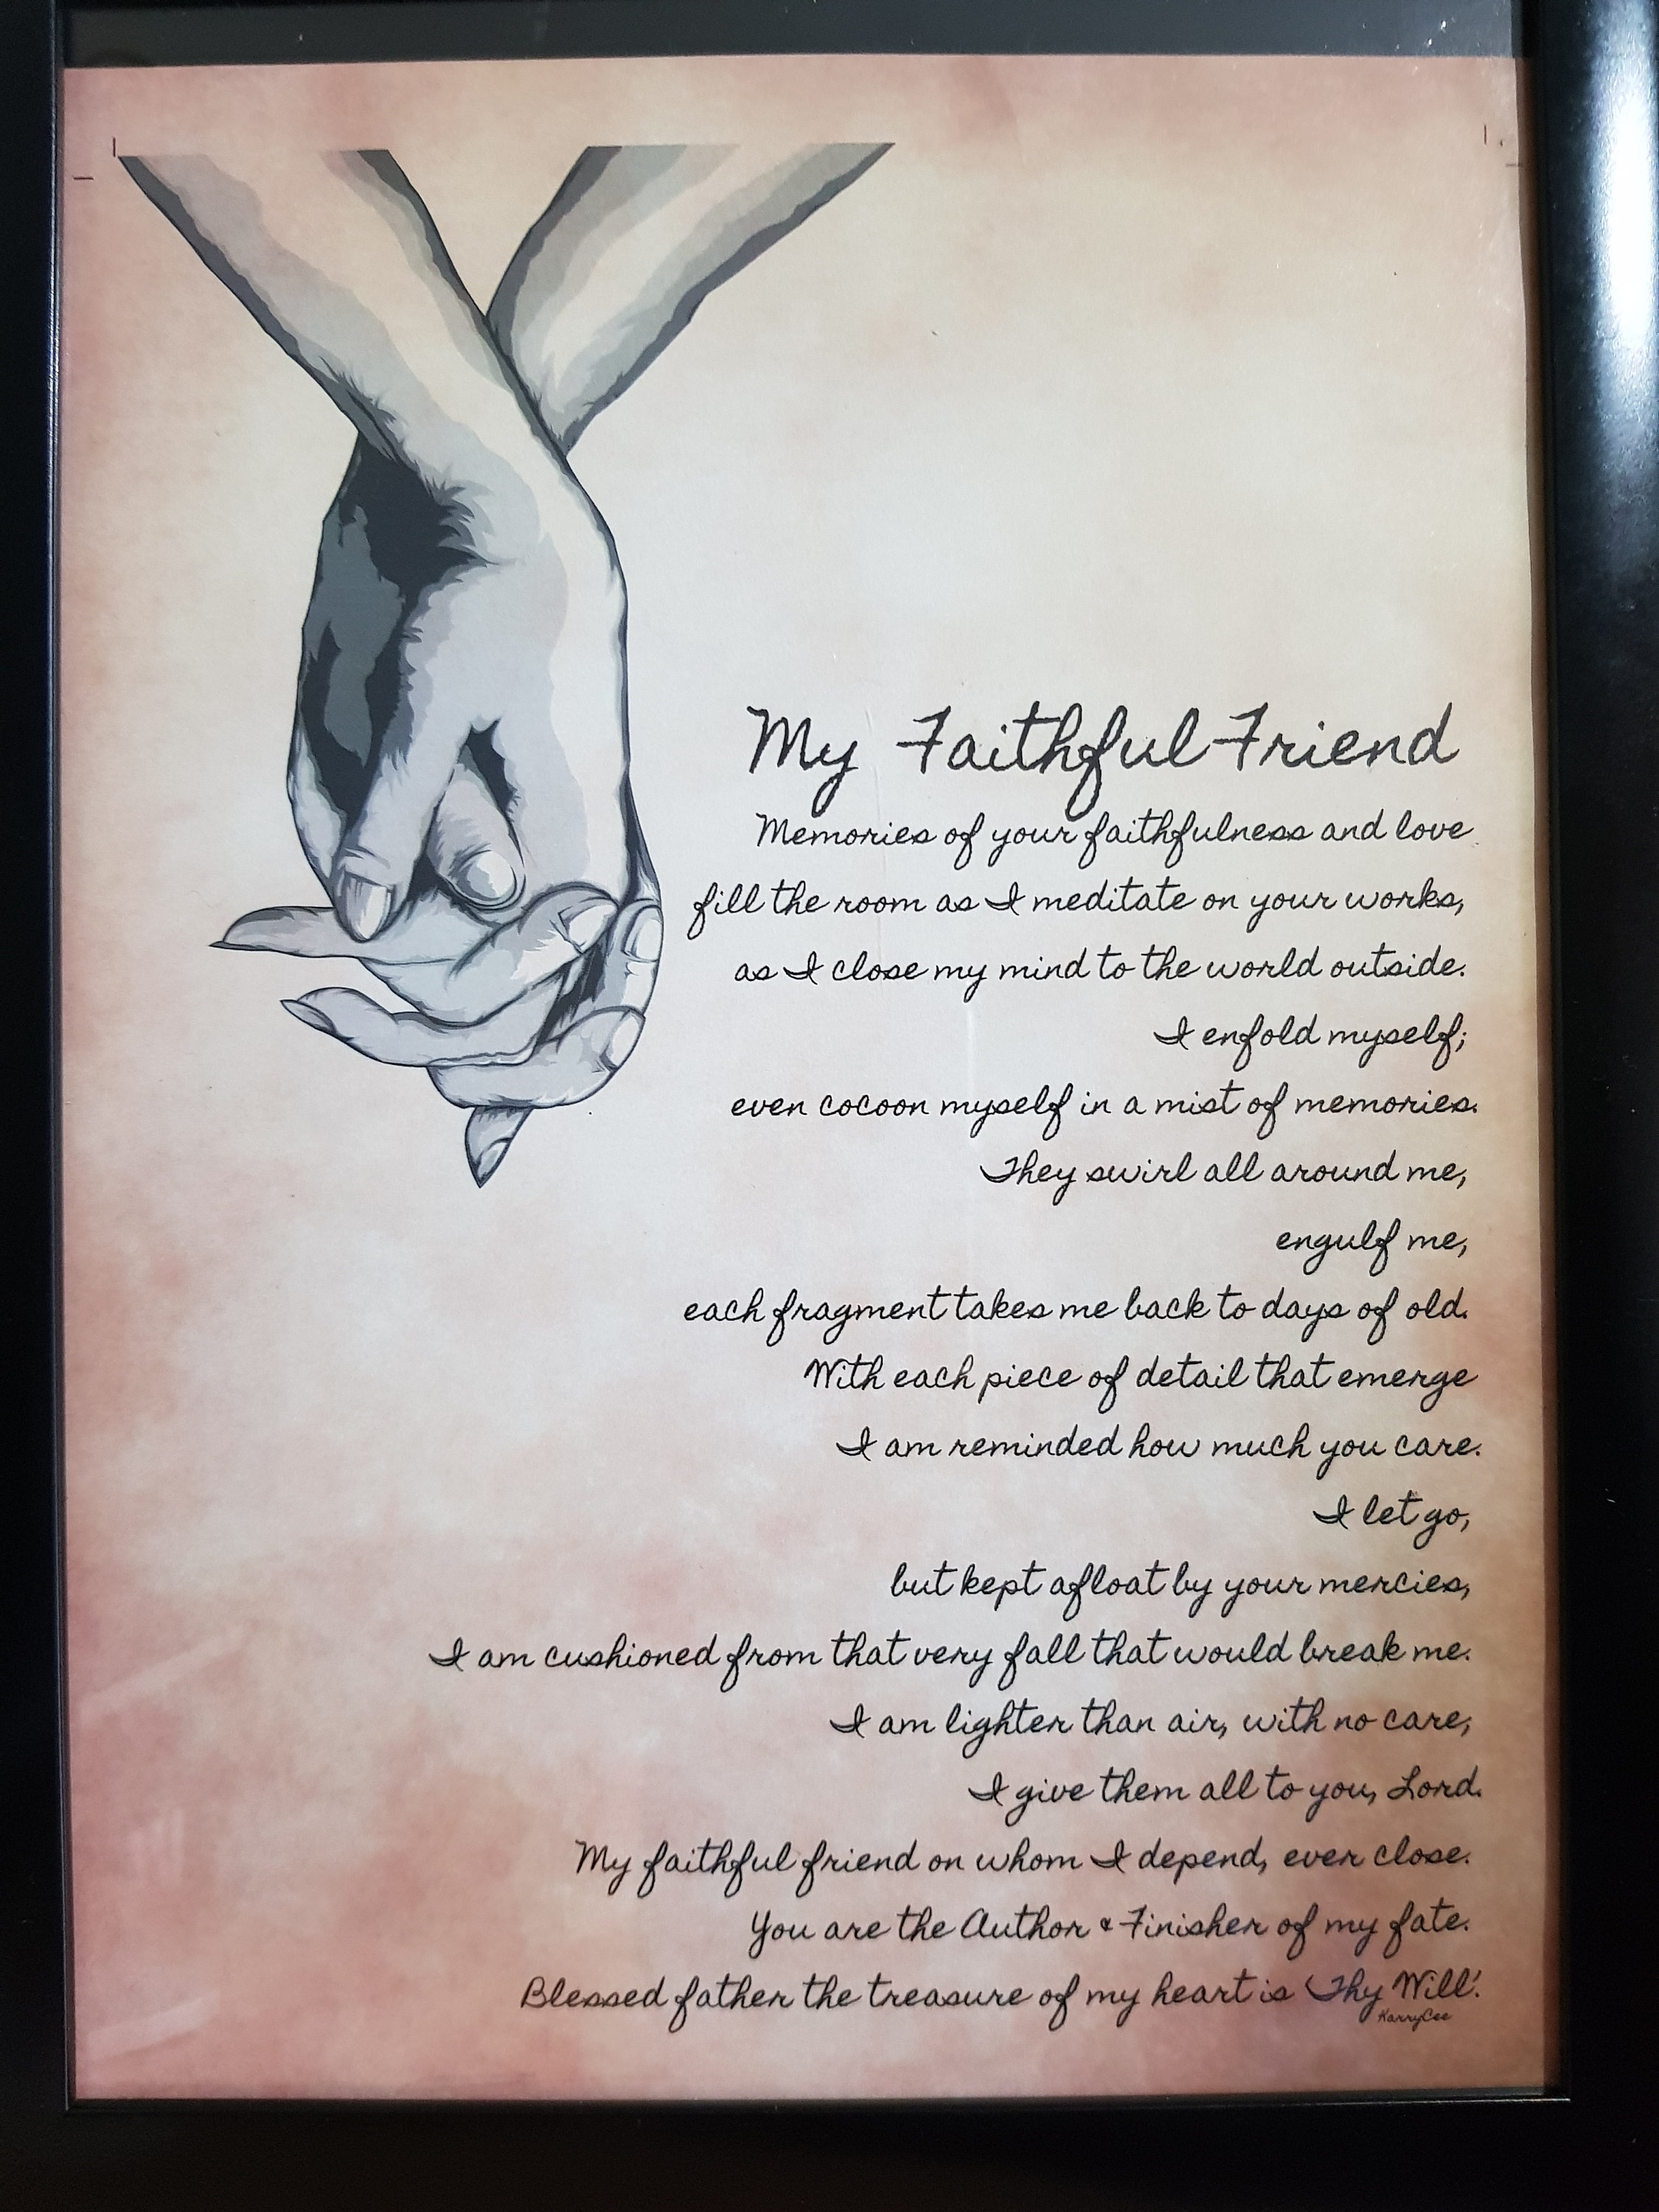 My Faithful Friend
Memories of your faithfulness and love
fill the room as I meditate on your works,
as I close my mind to the world outside.
I enfold myself;
even cocoon myself in a mist of memories.
They swirl all around me,
engulf me,
each fragment takes me back to days of old.
With each piece of detail that emerge
I am reminded how much you care.
I let go,
but kept afloat by your mercies,
I am cushioned from that very fall that would break me.
I am lighter than air, with no care,
I give them all to you, Lord.
My faithful friend on whom I depend, ever close.
You are the Author & Finisher of my fate.
Blessed father the treasure of my heart is 'Thy Will'.
KarryCee